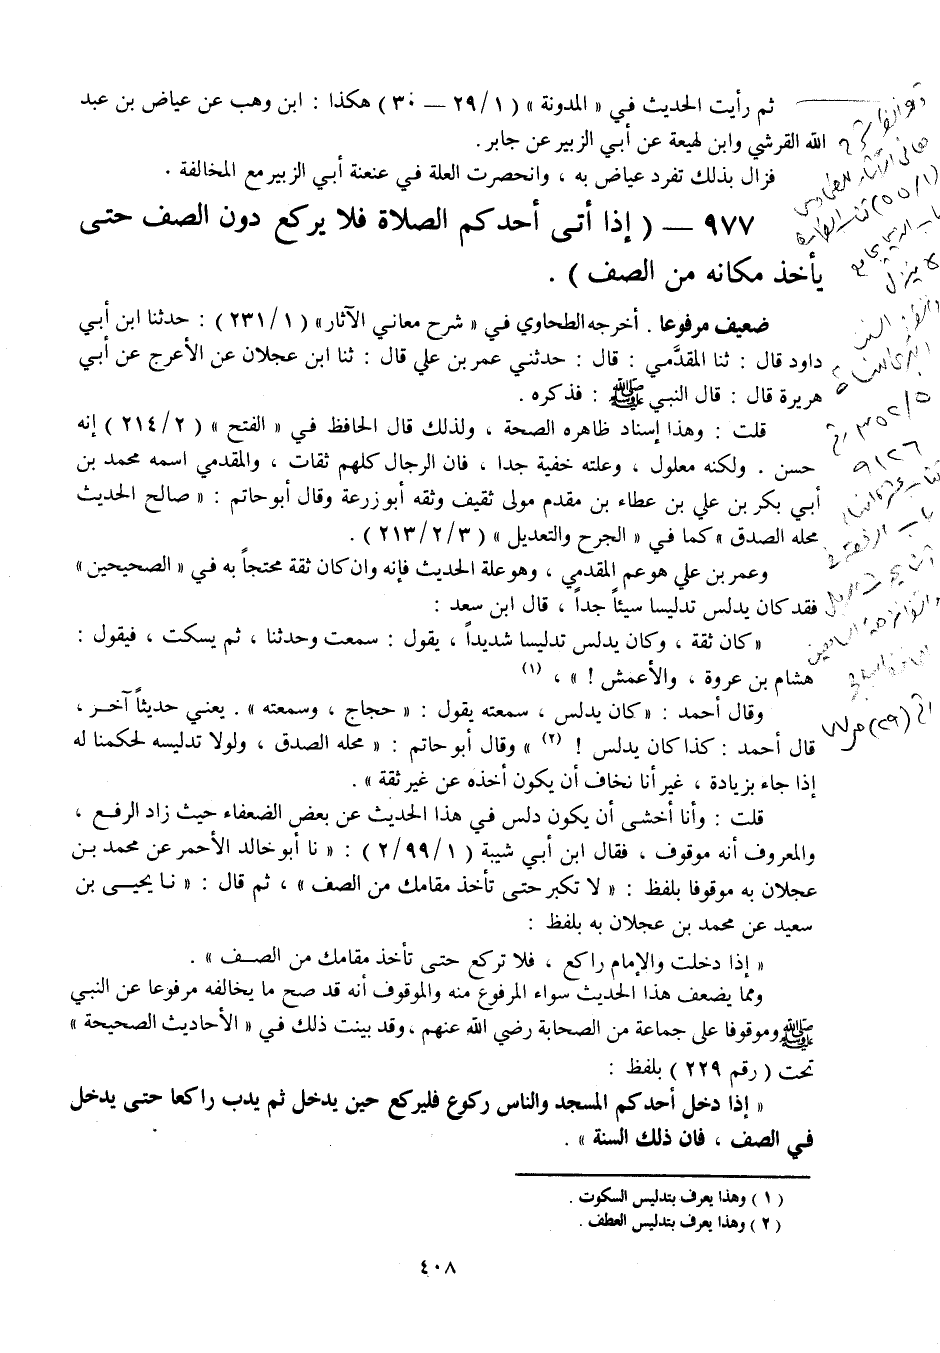 ثم رأيت الحديث في « المدونة » ( ١/ ٢٩ — ٣٠ ) هكذا : ابن وهب عن عياض بن عبد
الله القرشي وابن لهيعة عن أبي الزبير عن جابر .
فزال بذلك تفرد عياض به ، وانحصرت العلة في عنعنة أبي الزبير مع المخالفة .
٩٧٧ — ( إذا أتى أحدكم الصلاة فلا يركع دون الصف حتى
يأخذ مكانه من الصف ) .
ضعيف مرفوعا . أخرجه الطحاوي في « شرح معاني الآثار» ( ١/ ٢٣١ ) : حدثنا ابن أبي
داود قال : ثنا المقدَّمي : قال : حدثني عمر بن علي قال : ثنا ابن عجلان عن الأعرج عن أبي
هريرة قال : قال النبي ﷺ : فذكره .
قلت : وهذا إسناد ظاهره الصحة ، ولذلك قال الحافظ في « الفتح » ( ٢/ ٢١٤ ) إنه
حسن . ولكنه معلول ، وعلته خفية جدا ، فان الرجال كلهم ثقات ، والمقدمي اسمه محمد بن
أبي بكر بن علي بن عطاء بن مقدم مولى ثقيف وثقه أبو زرعة وقال أبو حاتم : « صالح الحديث
محله الصدق » كما في « الجرح والتعديل » ( ٣/ ٢/ ٢١٣ ) .
وعمر بن علي هو عم المقدمي ، وهو علة الحديث فإنه وان كان ثقة محتجاً به في « الصحيحين »
فقد كان يدلس تدليسا سيئاً جداً ، قال ابن سعد :
« كان ثقة ، وكان يدلس تدليسا شديداً ، يقول : سمعت وحدثنا ، ثم يسكت ، فيقول :
هشام بن عروة ، والأعمش ! » ، (١)
وقال أحمد : « كان يدلس ، سمعته يقول : « حجاج ، وسمعته » . يعني حديثاً آخر ،
قال أحمد : كذا كان يدلس ! (٢) » وقال أبو حاتم : « محله الصدق ، ولولا تدليسه لحكمنا له
إذا جاء بزيادة ، غير أنا نخاف أن يكون أخذه عن غير ثقة » .
قلت : وأنا أخشى أن يكون دلس في هذا الحديث عن بعض الضعفاء حيث زاد الرفع ،
والمعروف أنه موقوف ، فقال ابن أبي شيبة ( ١/ ٩٩/ ٢ ) : « نا أبو خالد الأحمر عن محمد بن
عجلان به موقوفا بلفظ : « لا تكبر حتى تأخذ مقامك من الصف » ، ثم قال : « نا يحيى بن
سعيد عن محمد بن عجلان به بلفظ :
« إذا دخلت والإمام راكع ، فلا تركع حتى تأخذ مقامك من الصف » .
ومما يضعف هذا الحديث سواء المرفوع منه والموقوف أنه قد صح ما يخالفه مرفوعا عن النبي
ﷺ وموقوفا على جماعة من الصحابة رضي الله عنهم ، وقد بينت ذلك في « الأحاديث الصحيحة »
تحت ( رقم ٢٢٩ ) بلفظ :
« إذا دخل أحدكم المسجد والناس ركوع فليركع حين يدخل ثم يدب راكعا حتى يدخل
في الصف ، فان ذلك السنة » .
( ١ ) وهذا يعرف بتدليس السكوت .
( ٢ ) وهذا يعرف بتدليس العطف .
٤٠٨